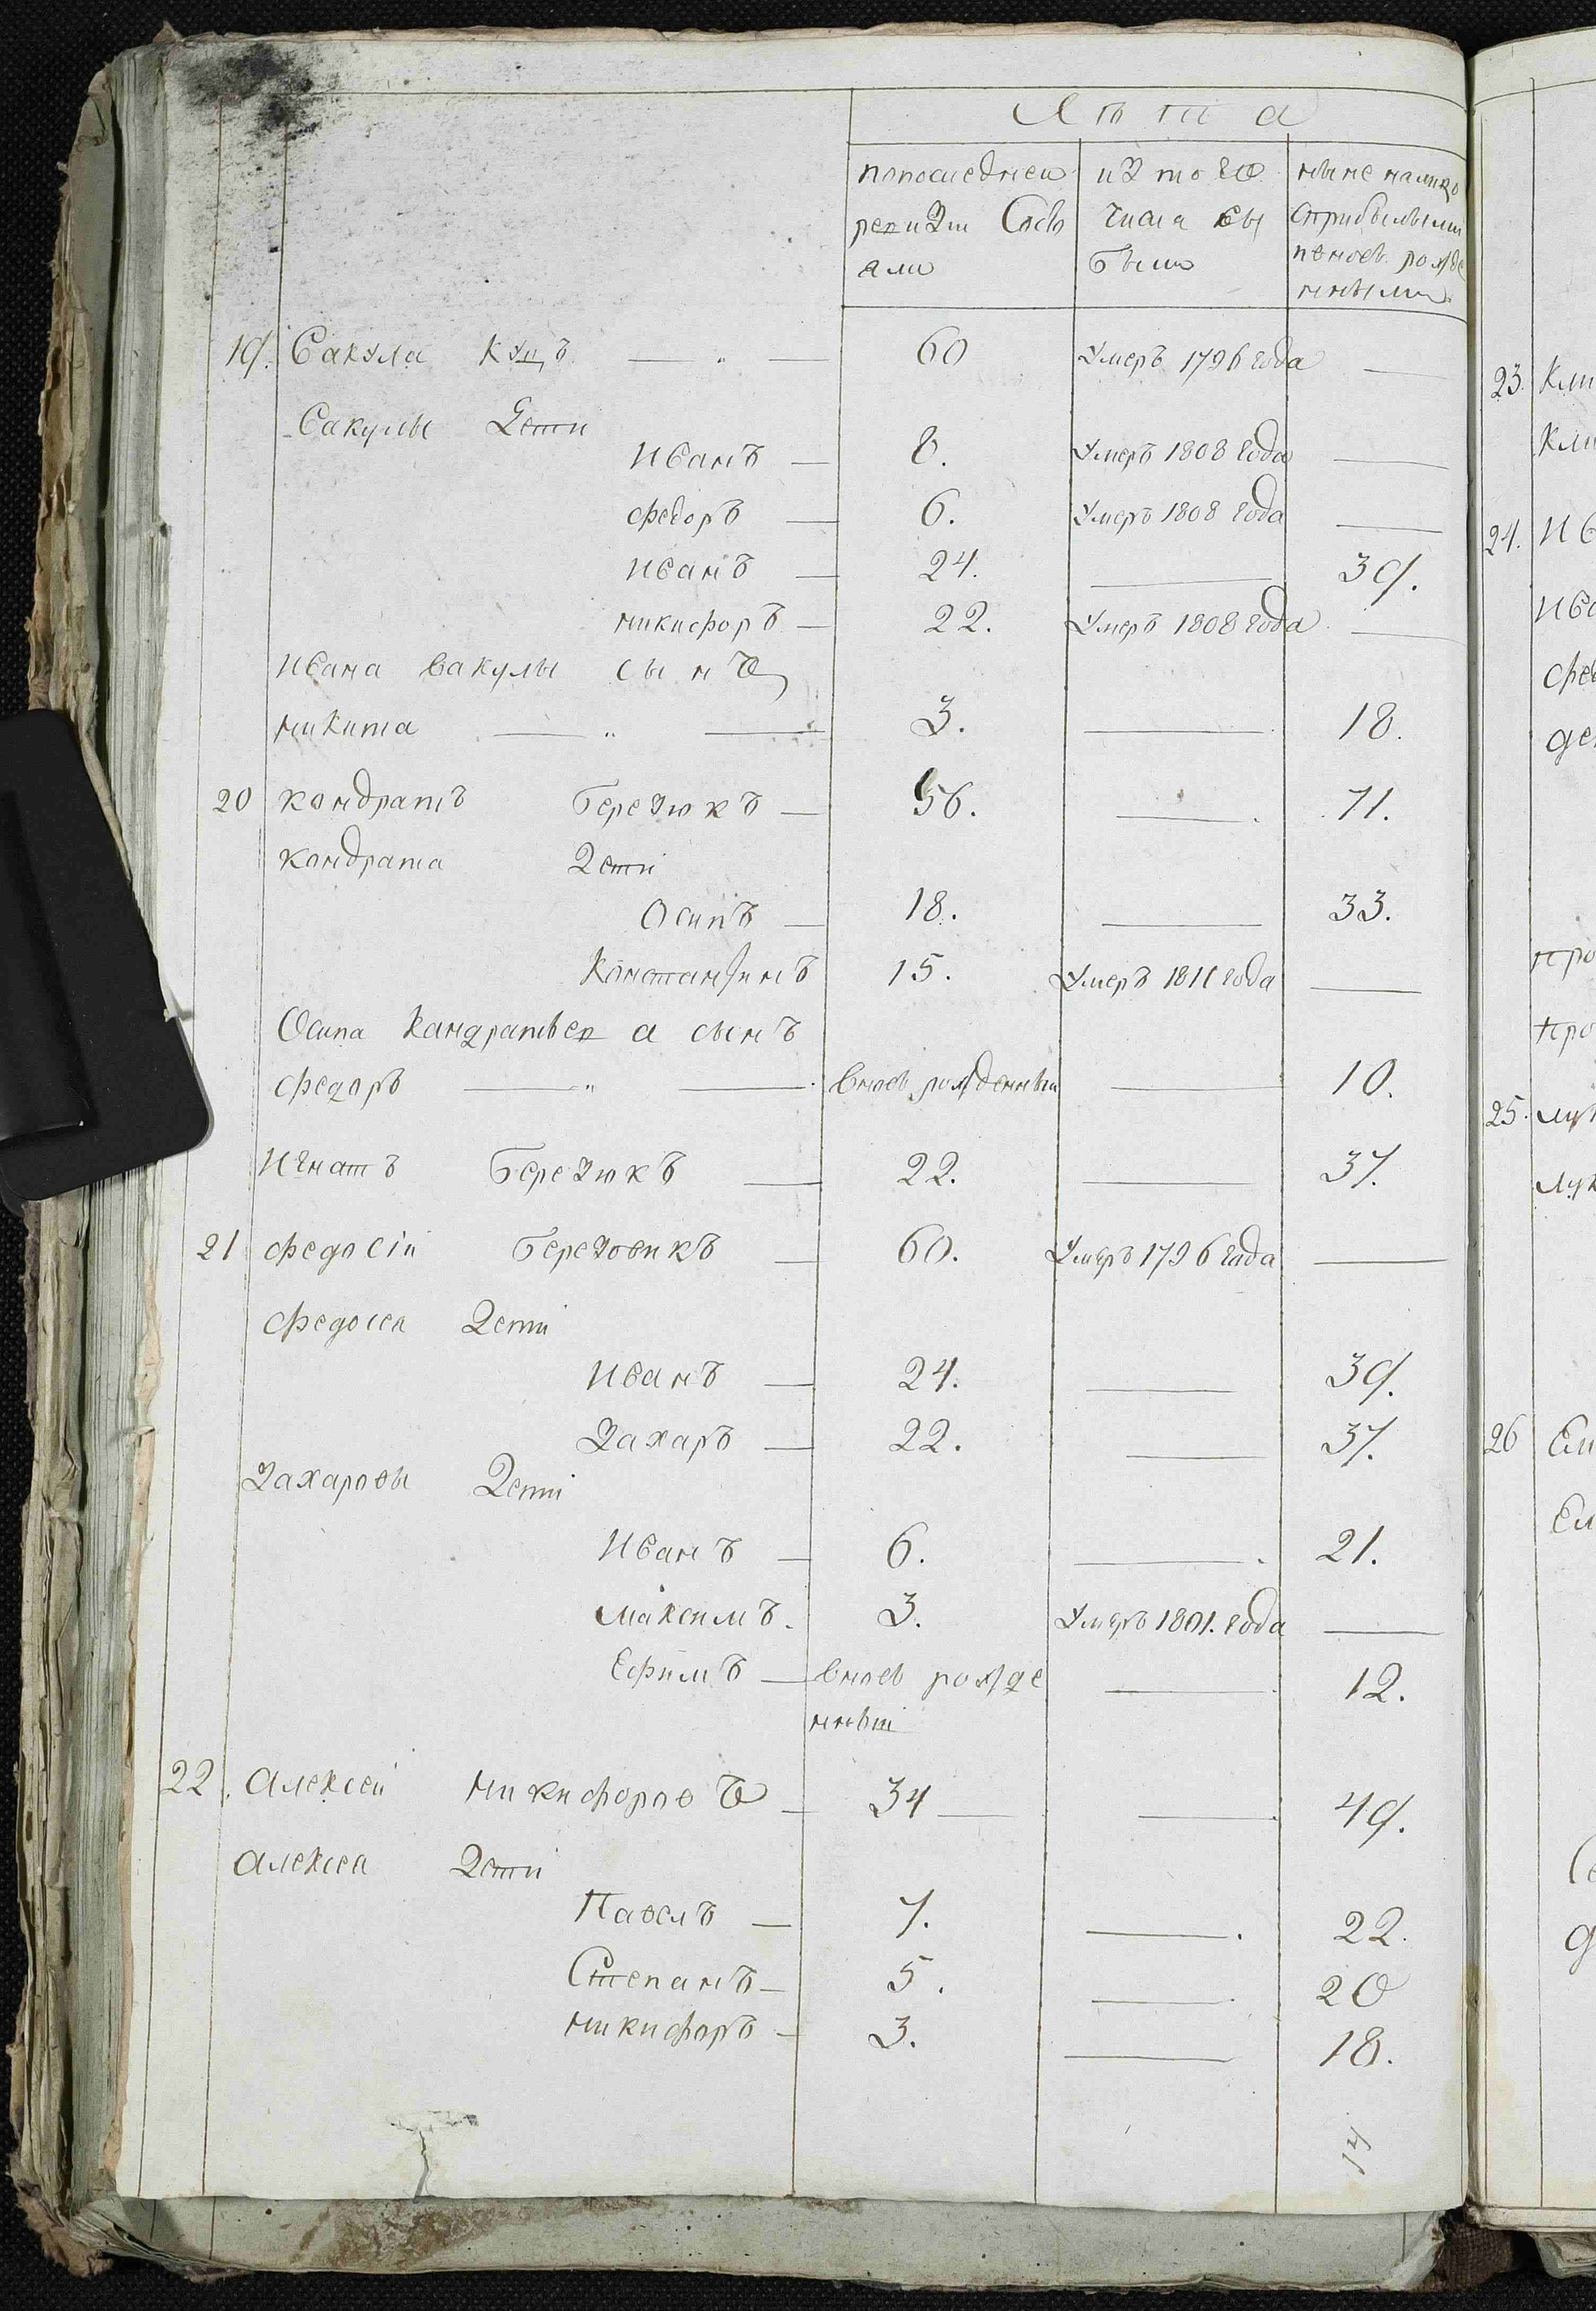 Лѣта
попоследнеи изтого ныне налицо
ревизіи состо числа вы сприбылыми
яли было иновь рожде
нными
19. Вакула Куцъ — „ — 60 умеръ 1796 года —
Вакулы дети
Иванъ — 8. умеръ 1808 года —
Федоръ — 6. умеръ 1808 года —
Иванъ — 24. — 39.
Никифоръ — 22. умеръ 1808 года —
Ивана Вакулы сынъ
Никита — „ — 3. — 18.
20 Кондратъ Березюкъ — 56. — 71.
Кондрата дети
Осипъ — 18. — 33.
Константинъ 15. умеръ 1811 года —
Осипа Кандратьева сынъ
Федоръ — „ — вновь рожденный — 10.
Игнатъ Березюкъ — 22. — 37.
21 Федосій Березовикъ — 60. умеръ 1796 года —
Федосея дети
Иванъ — 24. — 39.
Захаръ — 22. — 37.
Захаровы дети
Иванъ — 6. — 21.
Максимъ. 3. умеръ 1801. года —
Ефимъ — вновь рожде — 12.
нный
22. Алексей Никифоровъ — 34 — — 49.
Алексея дети
Павелъ — 7. — 22.
Степанъ — 5. — 20
Никифоръ — 3. — 18.
14
23.
24.
25.
26